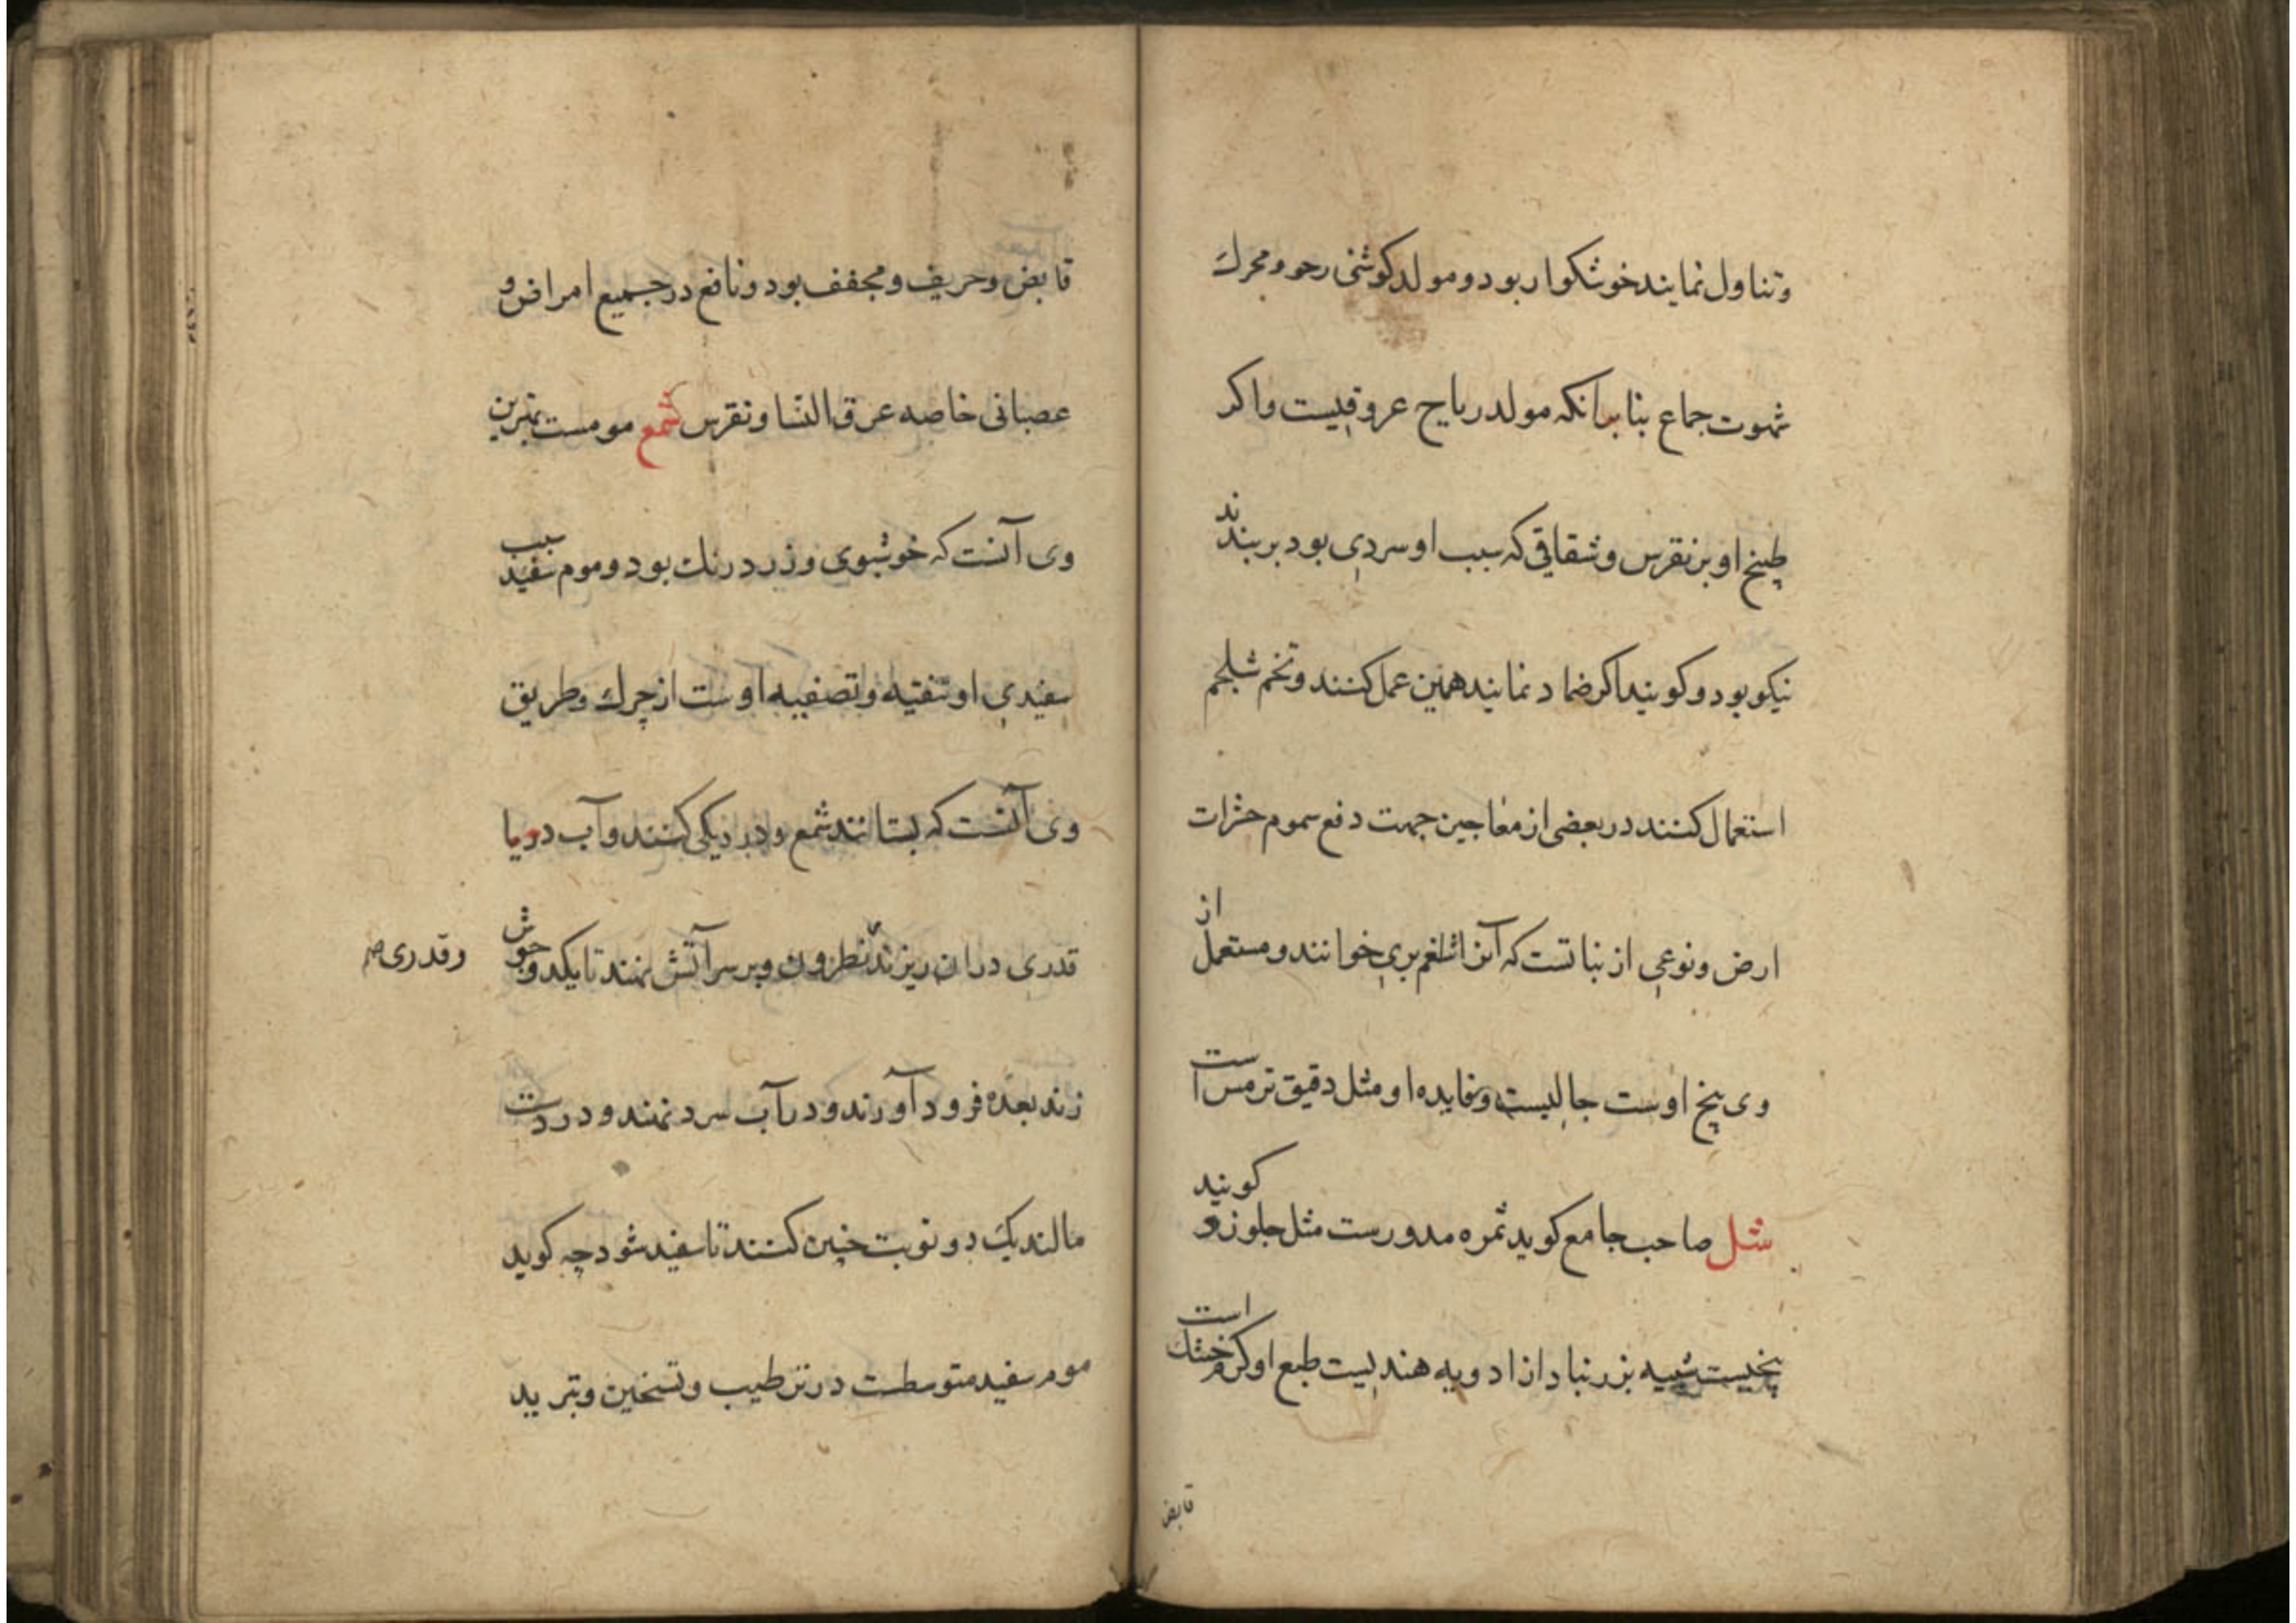 وتناول نمایند خوشکوار بود ومولد کوشتی رحو ومحرك
شهوت جماع بنا برانکه مولد ریاح عروقیست واکر
طبیخ او بر نقرس وشقاقی که سبب او سردی بود بربندند
نیکو بود وکویند اکر ضماد نمایند همین عمل کنند وتخم شلجم
استعمال کنند در بعضی از معاجین جهت دفع سموم حشرات
ارض ونوعی از نباتست که آنرا شلغم بری خوانند ومستعمل از
وی بیخ اوست جالیست وفایده او مثل دقیق ترمس است
شل صاحب جامع کوید ثمره مدورست مثل جلوز و کویند
بیخیست شبیه بزرنباد از ادویه هندیست طبع او کرم خشك است
قابض
قابض وحریف ومجفف بود ونافع در جمیع امراض و
عصبانی خاصه عرق النسا ونقرس شمع مومست بهترین
وی آنست که خوشبوی وزرد رنك بود وموم سفید سبب
سفیدی او تنقیه وتصفیه اوست از چرك وطریق
وی آنست که بستانند شمع ودر دیکی کنند وآب دریا
قدری دران ریزند نطرون وبر سر آتش نهند تا یکدو جوش
وقدری صح
زند بعده فرود آورند ودر آب سرد نهند ودر دست
مالند یك دو نوبت چنین کنند تا سفید شود چه کوید
موم سفید متوسطست در ترطیب وتسخین وتبرید